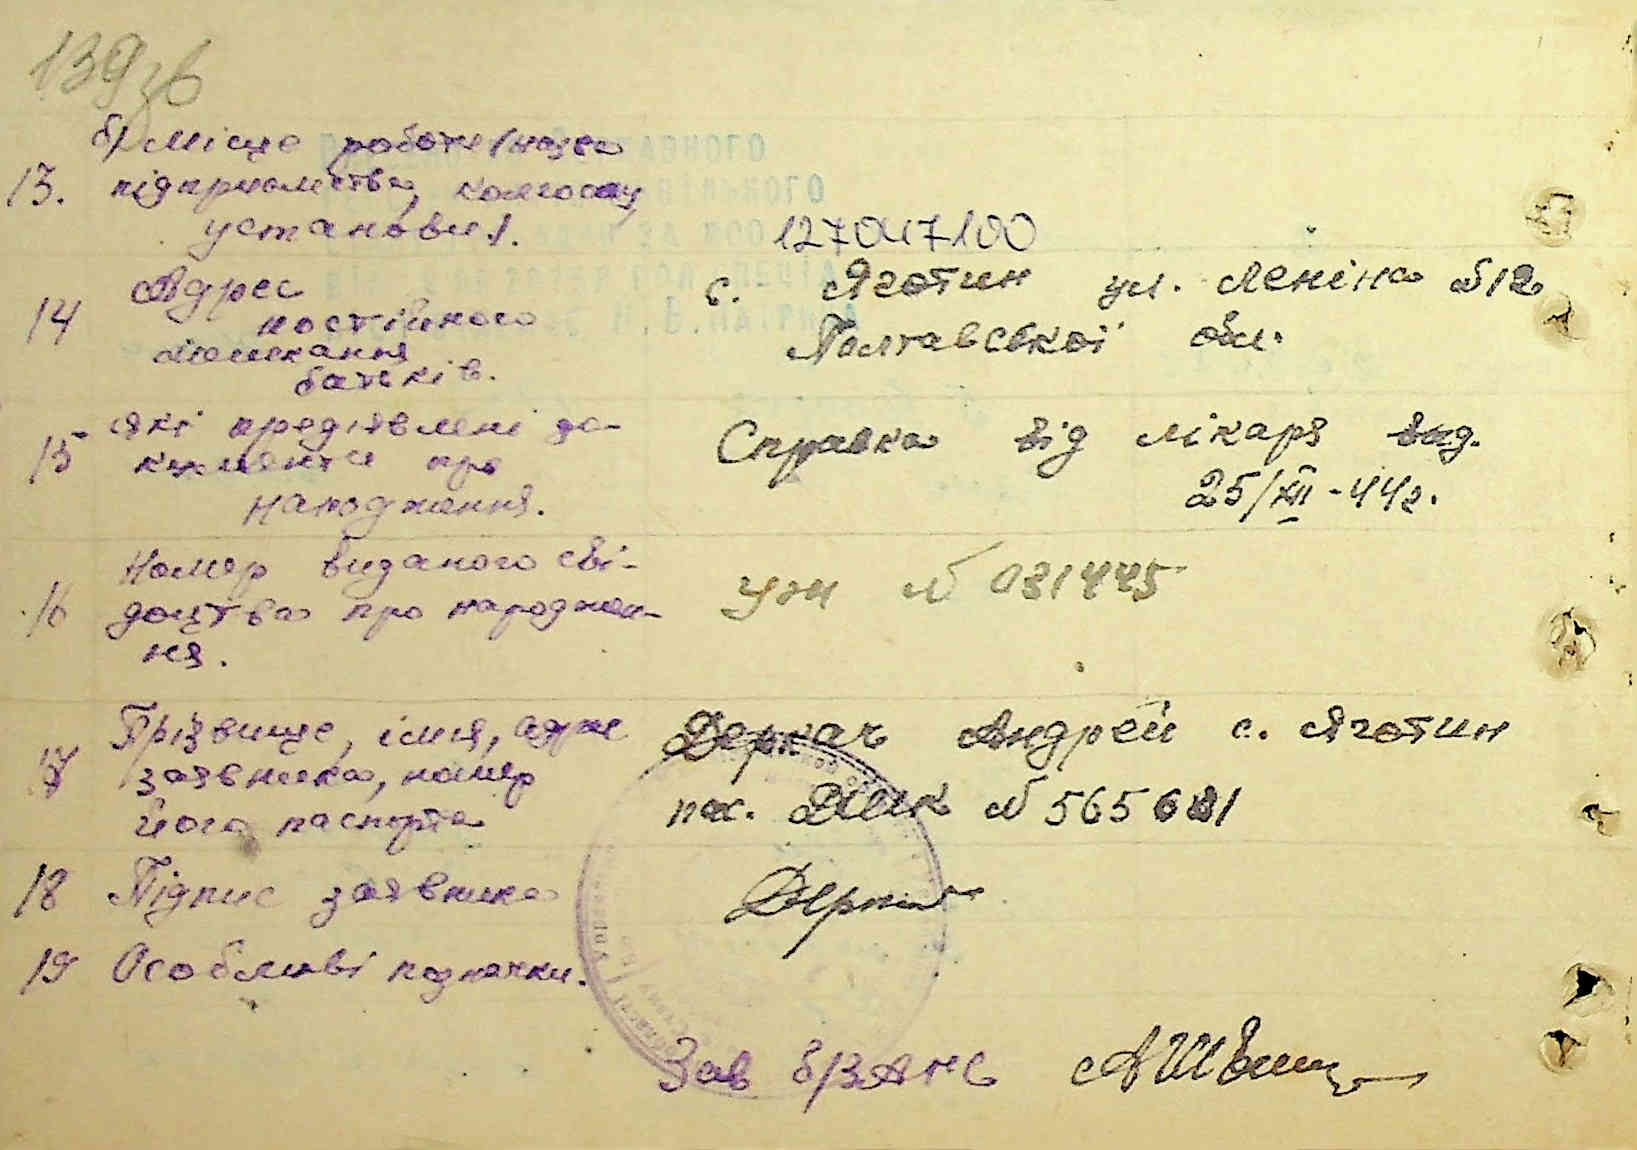 139зв
б) місце роботи (назва
13. підприємства, колгоспу,
установи).
127047100
14 Адрес
постійного
мешкання
батьків.
с. Яготин ул. Леніна №12
Полтавської обл.
15 Які предіявлені до-
кументи про
народження.
Справка від лікаря вид.
25/XII-44г.
16 Номер виданого сві-
доцтва про народжен-
ня.
УЖ № 031445
17 Прізвище, імя, адрес
заявника, номер
його паспорта
Деркач Андрей с. Яготин
пас. № 565
18 Підпис заявника
19 Особливі підмітки.
Зав б/ЗАГС